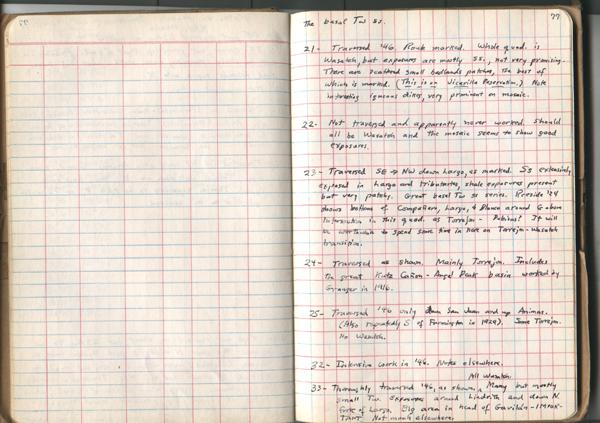 77
the basal Tw ss.
21- Traversed '46. Route marked. Whole quad. is
Wasatch, but exposures are mostly ss., not very promising.
There are scattered small badlands patches, the best of
which is marked. (This is on Jicarilla Reservation.) Note
interesting igneous dikes, very prominent on mosaic.
22- Not traversed and apparently never worked. Should
all be Wasatch and the mosaic seems to show good
exposures.
23- Traversed SE → NW down Largo, as marked. Ss extensively
exposed in Largo and tributaries, shale exposures present
but very patchy. Great basal Tw ss series. Reeside '24
shows bottoms of Compañero, Largo, & Blanco around & above
intersection in this quad. as Torrejon - Publius? It will
be worthwhile to spend some time in here on Torrejon-Wasatch
transition.
24- Traversed as shown. Mainly Torrejon. Includes
the great Kutz Cañon - Angel Peak basin worked by
Granger in 1916.
25- Traversed '46 only down San Juan and up Animas.
(Also repeatedly S of Farmington in 1929). Some Torrejon.
No Wasatch.
32- Intensive work in '46. Notes elsewhere.
All Wasatch.
33- Thoroughly traversed '46, as shown. Many but mostly
small Tw. exposures around Lindrith and down N.
fork of Largo. Big area in head of Gavilán - IMPOR-
TANT. Not much elsewhere.